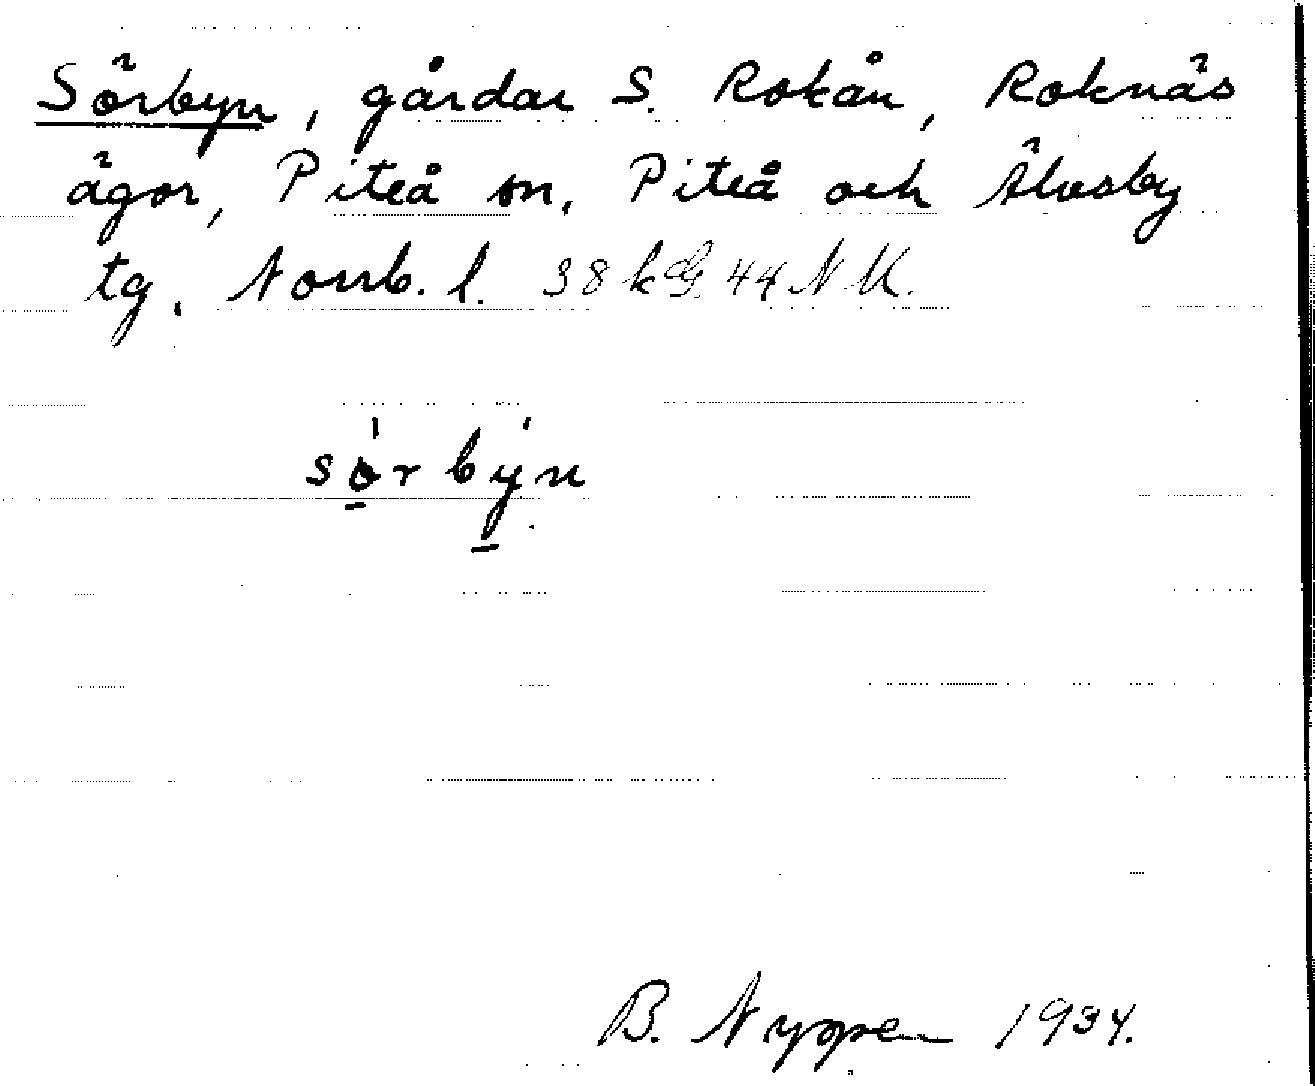 Sörbyn, gårdar S. Rokån, Roknäs
ägor, Piteå sn, Piteå och Älvsby
tg. Norrb. l. 38 k G. 44 N K.
sörbyn
B. Nygren 1934.